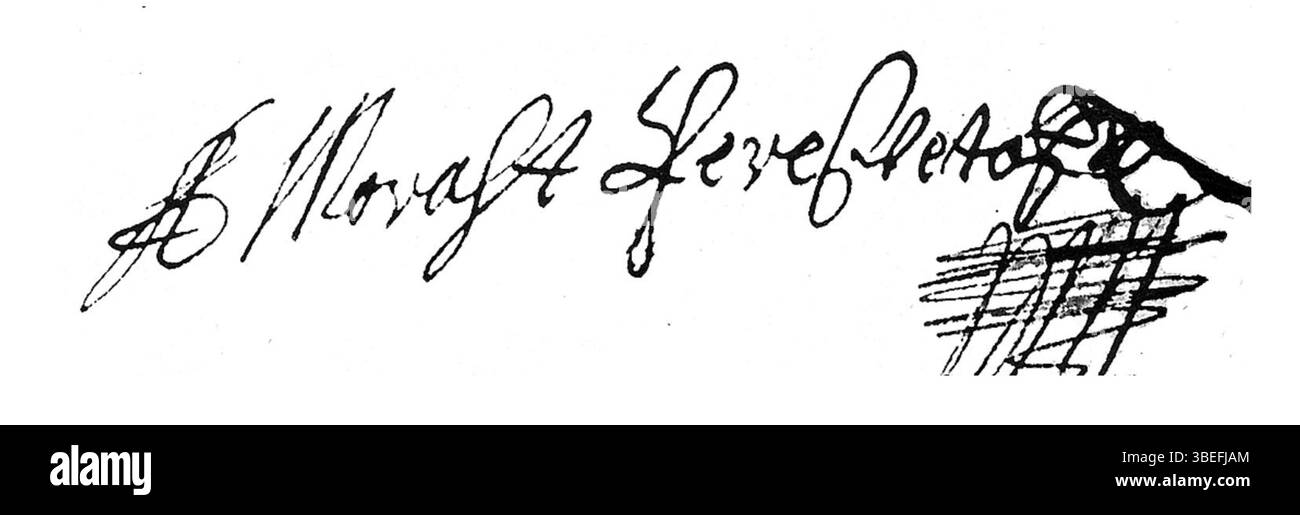 A Moraht Peresvetof
alamy
Image ID: 3BEFJAM
www.alamy.com